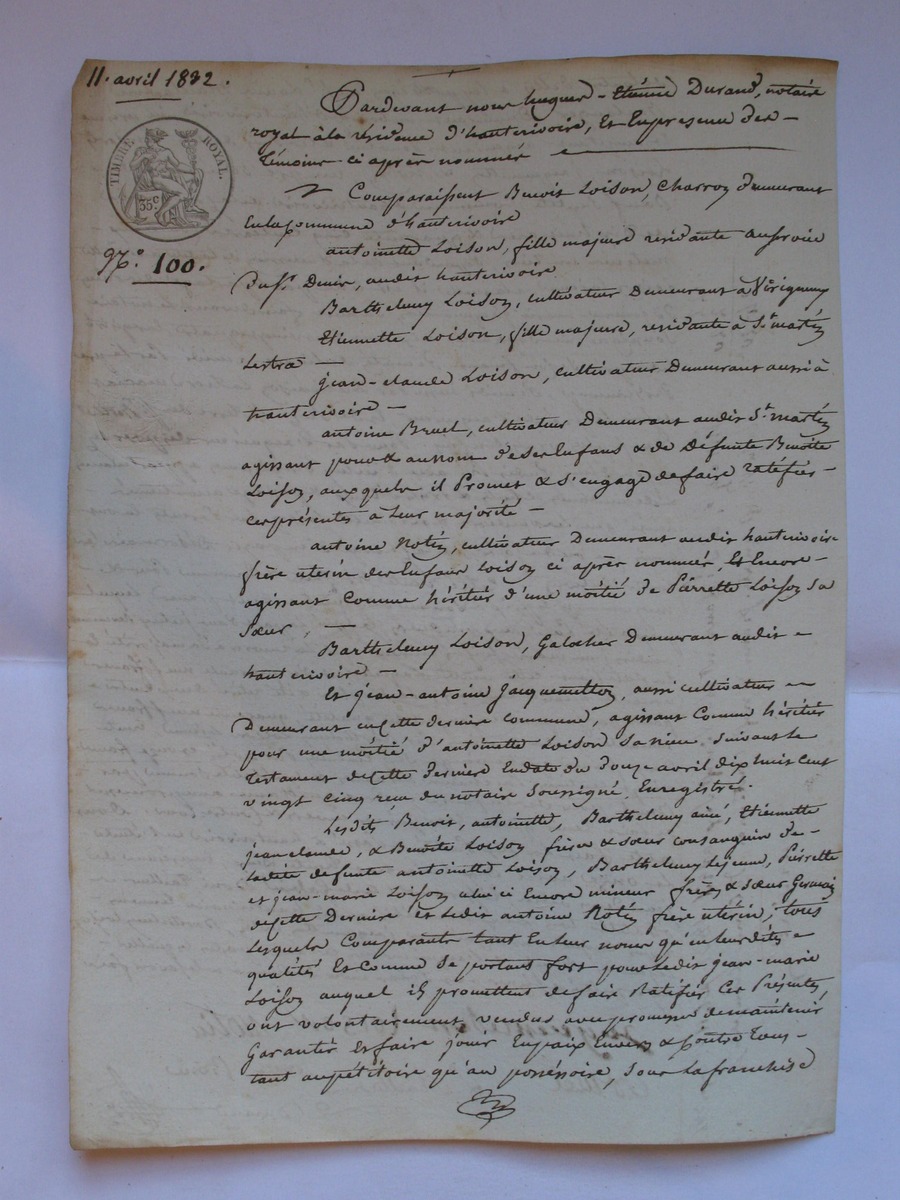 11. avril 1832.
TIMBRE ROYAL.
35c.
N.° 100.
Pardevant nous hugues-Etiénne Durand, notaire
royal à la résidence d'hauterivoire, Et En presence des
témoins ci après nommés
Comparaissent Benoit Loison, Charron demeurant
En la commune d'hauterivoire
antoinette Loison, fille majeure residante
Denis, audit hauterivoire
Barthelemy Loison, cultivateur Demeurant à Virigneux
Etiennette Loison, fille majeure, residante à St. martin
Lestra
jean-claude Loison, cultivateur Demeurant aussi à
hauterivoire
antoine Bruel, cultivateur Demeurant audit St. martin
agissant pour & au nom de ses Enfans & de Défunte Benoîte
Loison, auxquels il Promet & s'engage de faire ratifier
ces présentes à leur majorité
antoine Notin, cultivateur Demeurant audit hauterivoire
frère utérin des Enfans Loison ci après nommés, Et Encore
agissant comme héritier d'une moitié de Pierrette Loison sa
sœur,
Barthelemy Loison, Galocher Demeurant audit
hauterivoire
Et jean-antoine Jacquemetton, aussi cultivateur
Demeurant en cette derniere commune, agissant comme héritier
pour une moitié d'antoinette Loison sa niece suivant le
Testament de cette derniere En date du Douze avril dix huit cent
vingt cinq recu du notaire soussigné, Enregistré.
Lesdits Benoit, antoinette, Barthelemy ainé, Etiennette
jean claude, & Benoîte Loison frères & sœurs consanguin de
ladite defunte antoinette Loison, Barthelemy Lejeune, Pierrette
et jean-marie Loison celui ci Encore mineur frères & sœur Germain
de cette Derniere et Ledit antoine Notin frère utérin, tous
Lesquels Comparants tant En leur noms qu'en leurdites
qualités Et Comme se portans fort pour Ledit jean-marie
Loison auquel ils promettent de faire Ratifier Ces Présentes,
ont volontairement vendus avec promesse de maintenir
Garantir Et faire jouir En paix Envers & contre tous
tant au pétitoire qu'au possessoire, sous la franchise